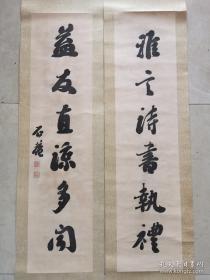 雅言詩書執禮
益友直諒多聞
石庵